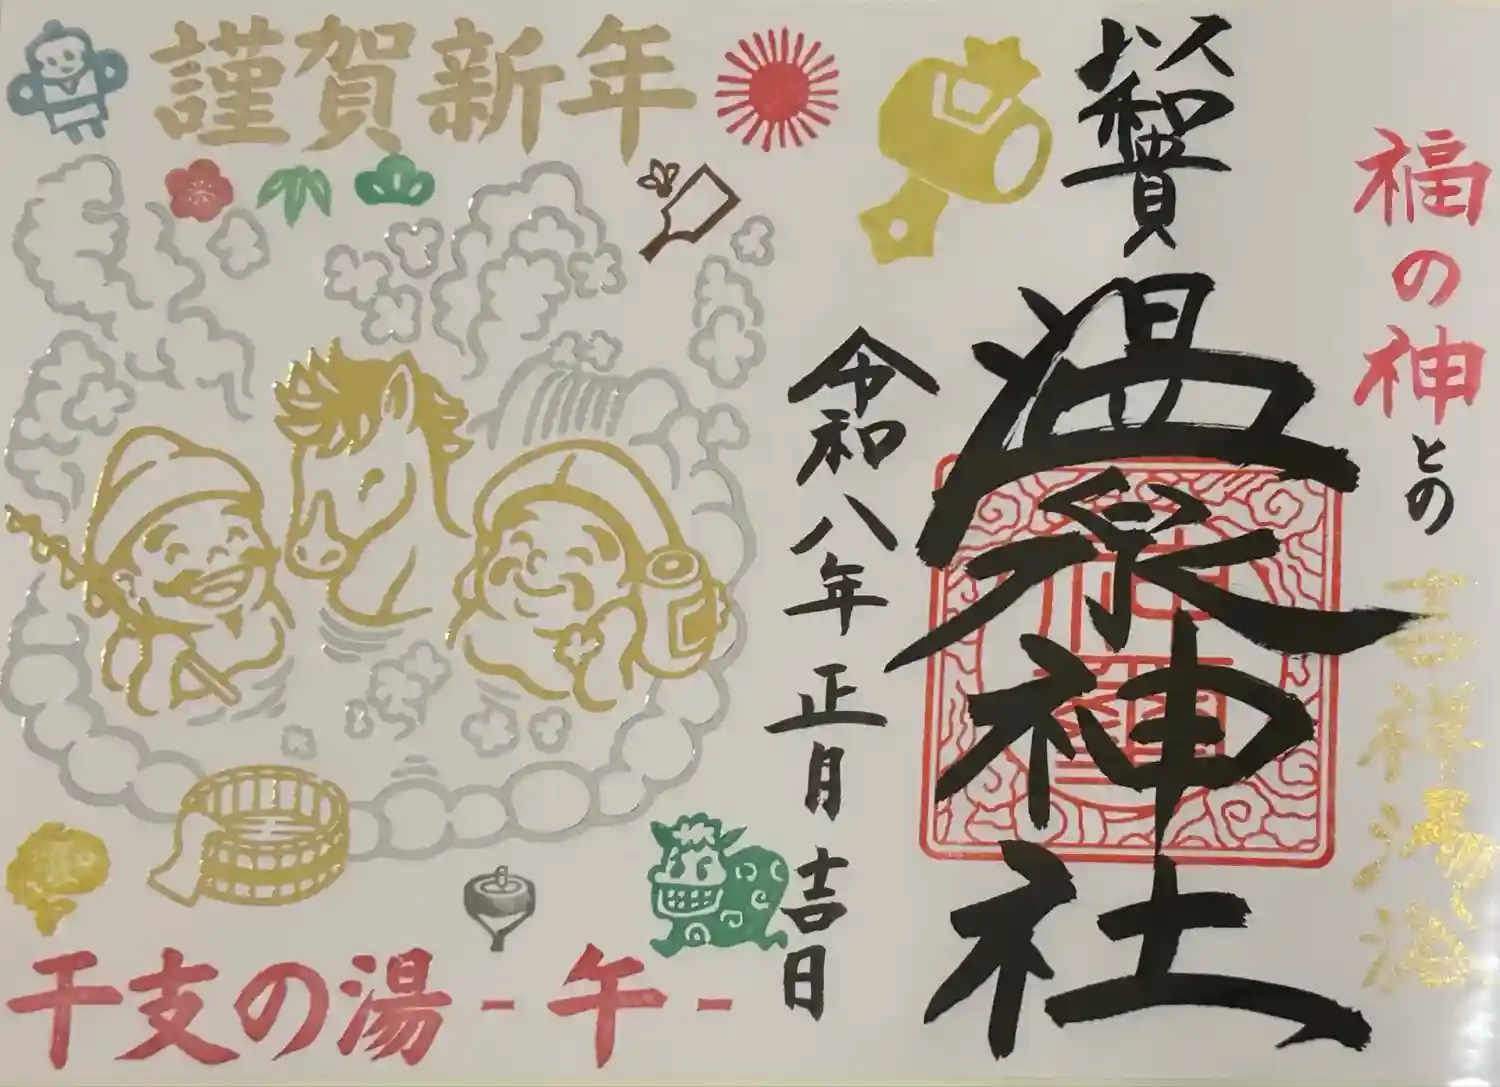 福の神との吉祥湯浴
温泉神社
令和八年正月吉日
謹賀新年
干支の湯 - 午 -